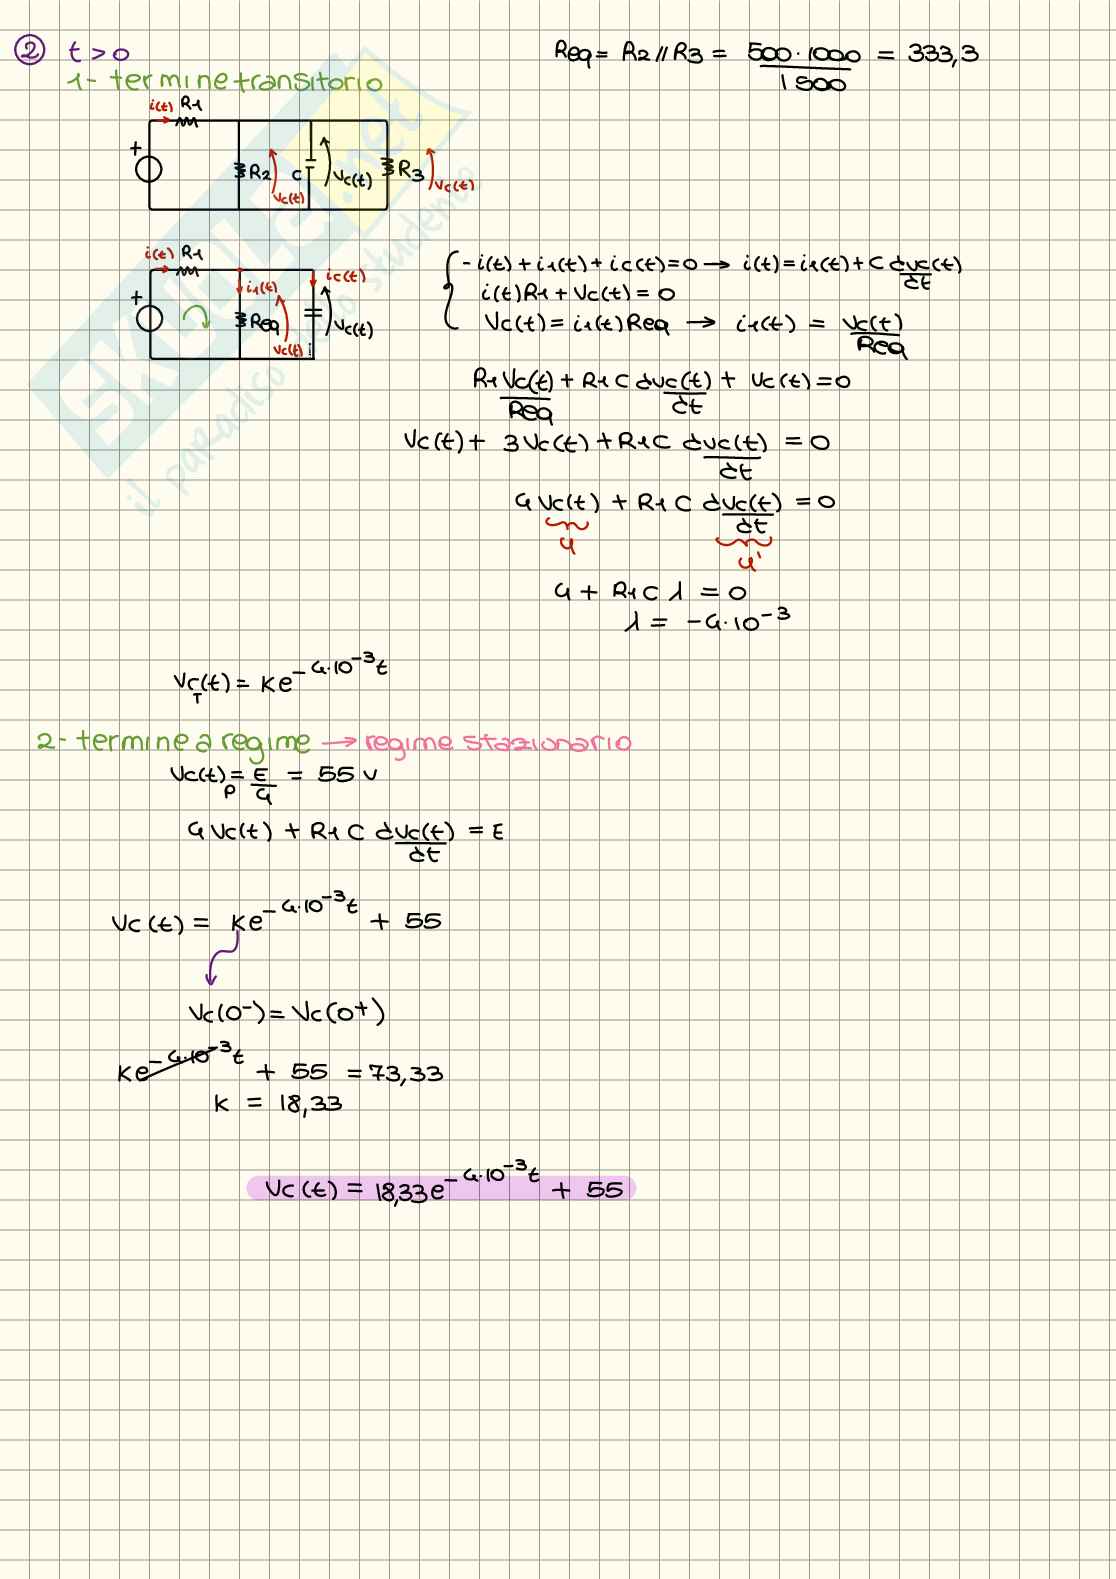 ② t > 0
Req = R2 // R3 = 500 · 1000 / 1500 = 333,3
1- termine transitorio
i(t) R1
+ R2 vc(t) C vc(t) R3 vc(t)
i(t) R1 ic(t)
+ i1(t) Req vc(t) vc(t)
{ - i(t) + i1(t) + ic(t) = 0 → i(t) = i1(t) + C dvc(t)/dt
i(t)R1 + vc(t) = 0
Vc(t) = i1(t) Req → i1(t) = vc(t)/Req
R1 Vc(t)/Req + R1 C dvc(t)/dt + vc(t) = 0
Vc(t) + 3 Vc(t) + R1 C dvc(t)/dt = 0
4 Vc(t) + R1 C dvc(t)/dt = 0
y y'
4 + R1 C λ = 0
λ = -4·10⁻³
VcT(t) = Ke^-4·10⁻³t
2- termine a regime → regime stazionario
Vc(t)p = E/4 = 55 V
4 Vc(t) + R1 C dvc(t)/dt = E
Vc(t) = Ke^-4·10⁻³t + 55
Vc(0⁻) = Vc(0⁺)
Ke^-4·10⁻³t + 55 = 73,33
K = 18,33
Vc(t) = 18,33e^-4·10⁻³t + 55
SKUOLA.net